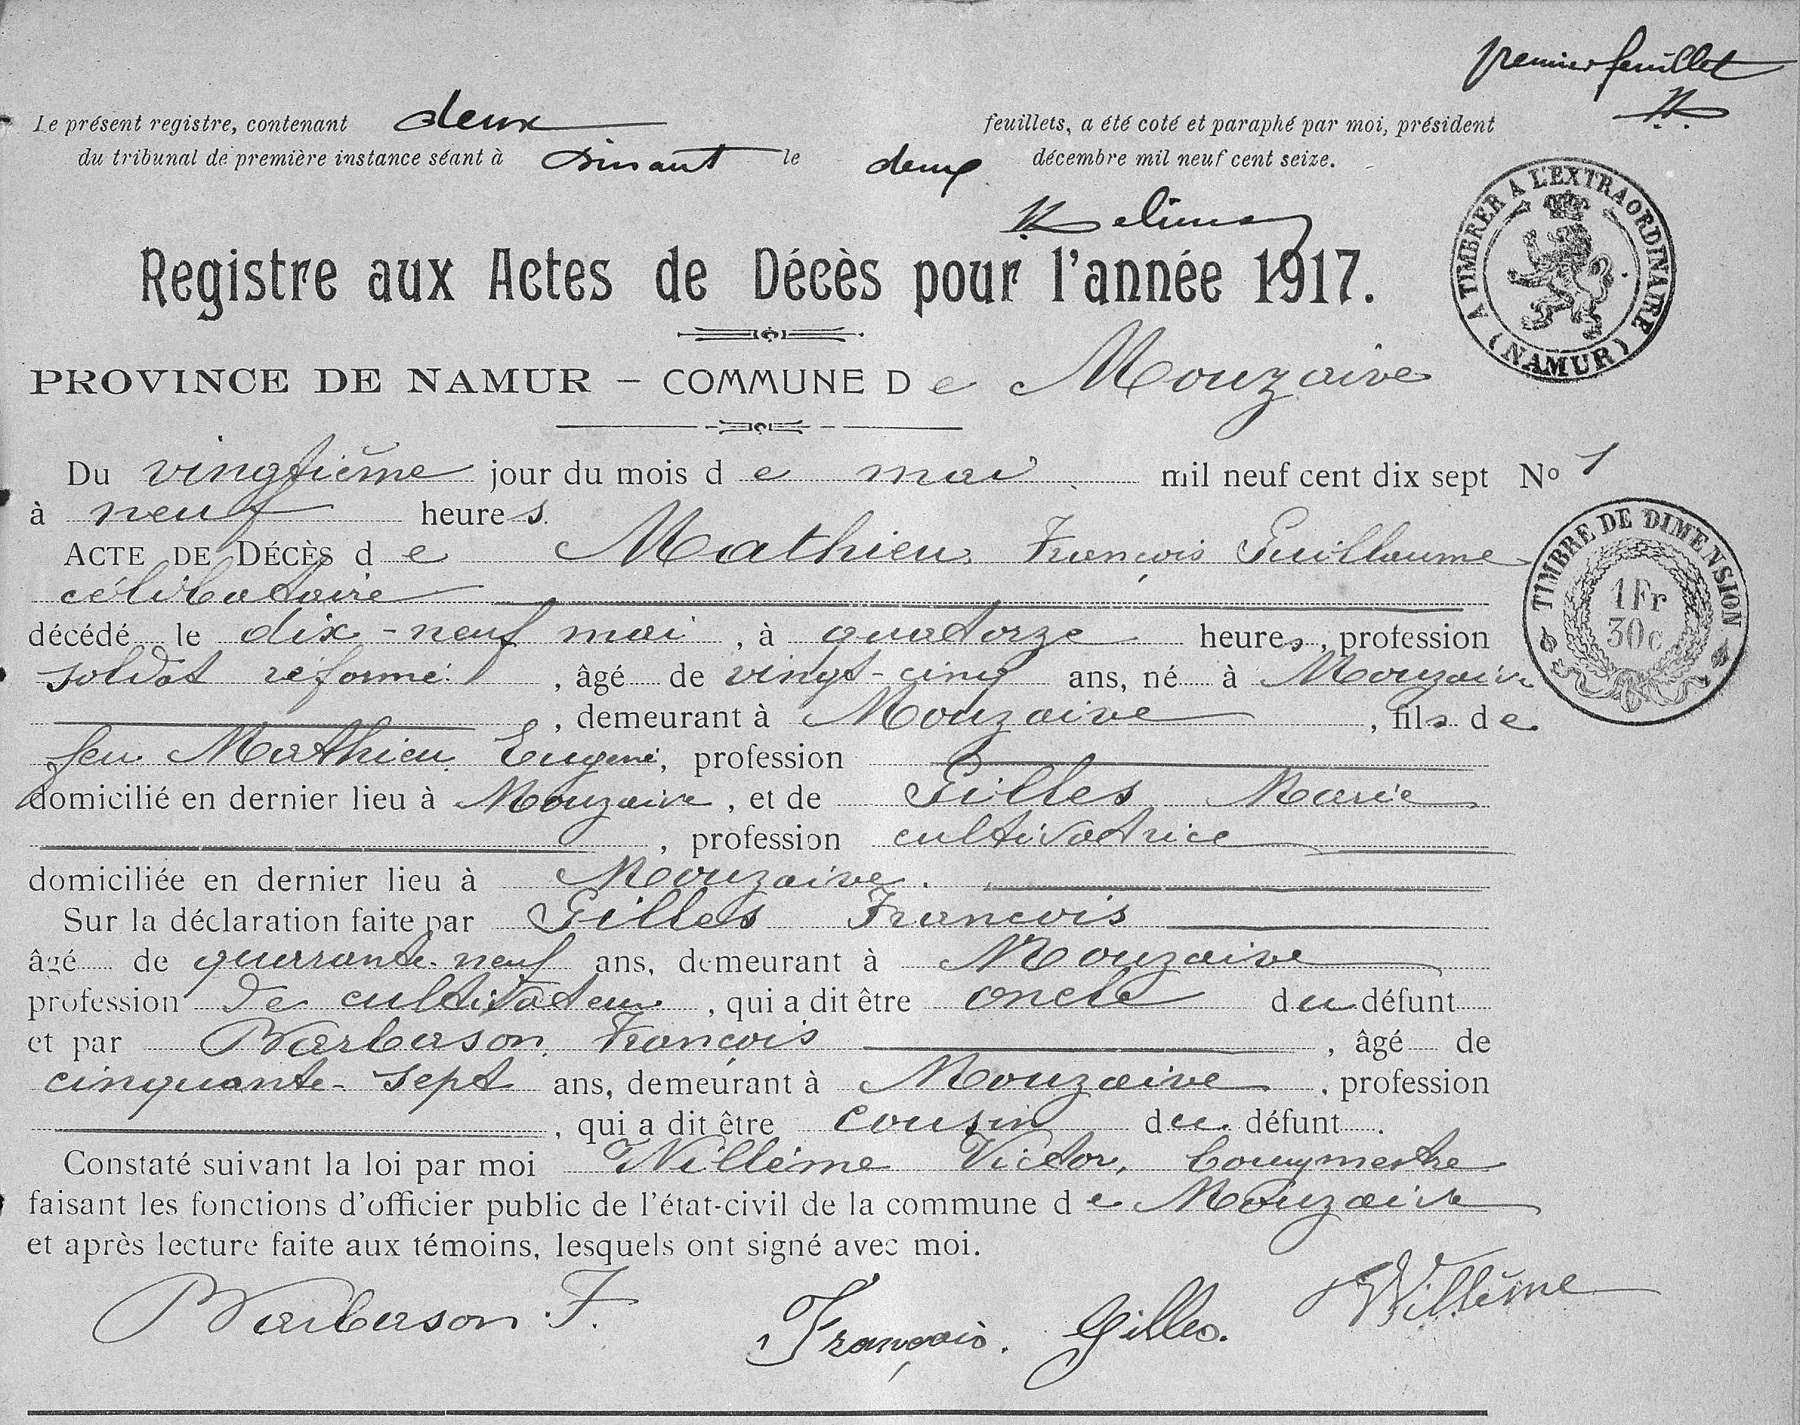 premier feuillet
Le présent registre, contenant deux feuillets, a été coté et paraphé par moi, président
du tribunal de première instance séant à Dinant le deux décembre mil neuf cent seize.
A TIMBRER A L'EXTRAORDINAIRE
(NAMUR)
Registre aux Actes de Décès pour l'année 1917.
PROVINCE DE NAMUR – COMMUNE De Mouzaive
Du vingtième jour du mois de mai mil neuf cent dix sept No 1
à neuf heures.
ACTE DE DÉCÈS de Mathieu, François Guillaume
célibataire
TIMBRE DE DIMENSION
1Fr
30c
décédé le dix-neuf mai, à quatorze heures, profession
soldat réformé, âgé de vingt-cinq ans, né à Mouzaive
, demeurant à Mouzaive, fils de
feu Mathieu Eugène, profession
domicilié en dernier lieu à Mouzaive, et de Gilles Marie
, profession cultivatrice
domiciliée en dernier lieu à Mouzaive.
Sur la déclaration faite par Gilles François
âgé de quarrante-neuf ans, demeurant à Mouzaive
profession de cultivateur, qui a dit être oncle du défunt
et par Barbason, François, âgé de
cinquante-sept ans, demeurant à Mouzaive, profession
, qui a dit être cousin du défunt.
Constaté suivant la loi par moi Willème Victor, bourgmestre
faisant les fonctions d'officier public de l'état-civil de la commune de Mouzaive
et après lecture faite aux témoins, lesquels ont signé avec moi.
Barbason. F. François. Gilles. Willème